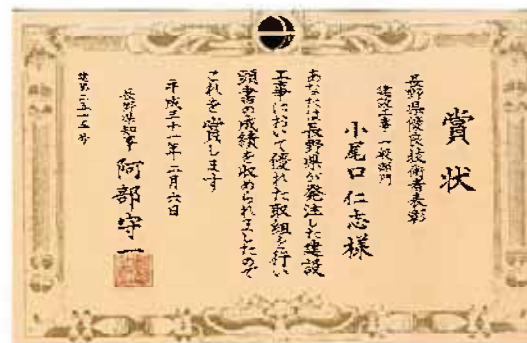 賞状
長野県優良技術者表彰
建設工事 一般部門
小尾口 仁志 様
あなたは長野県が発注した建設
工事において優れた取組を行い
顕著の成績を収められましたので
これを賞します
平成三十一年二月六日
長野県知事 阿部守一